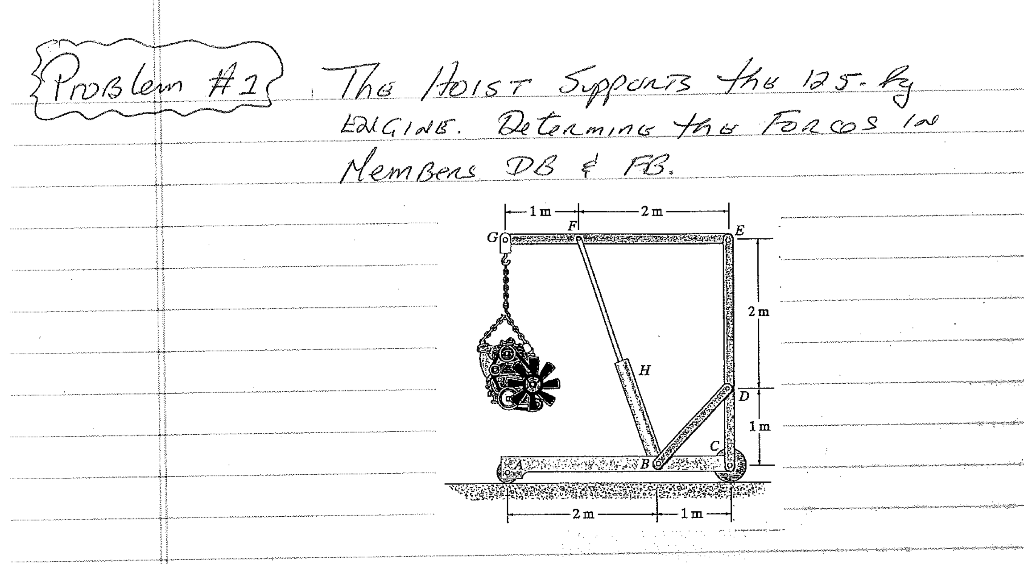 Problem #1
The Hoist Supports the 125-kg
Engine. Determine the Forces in
Members DB & FB.
1 m
2 m
G
F
E
2 m
H
D
1 m
C
A
B
2 m
1 m